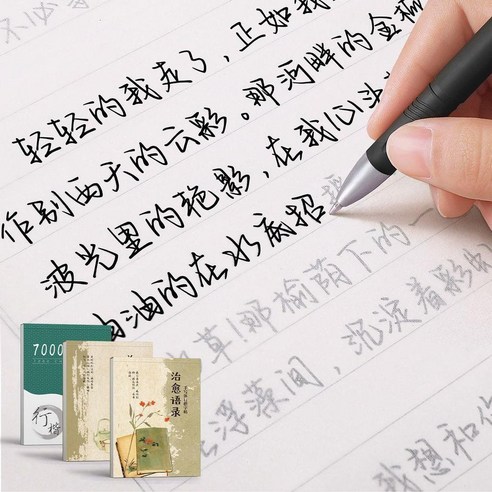 不必
轻轻的我走了,正如我
作别西天的云彩。那河畔的金
波光里的艳影,在我心头
油油的在水底招
草!那榆荫下的一
在浮藻间,沉淀着彩虹
我想和你
7000
行楷
治愈语录